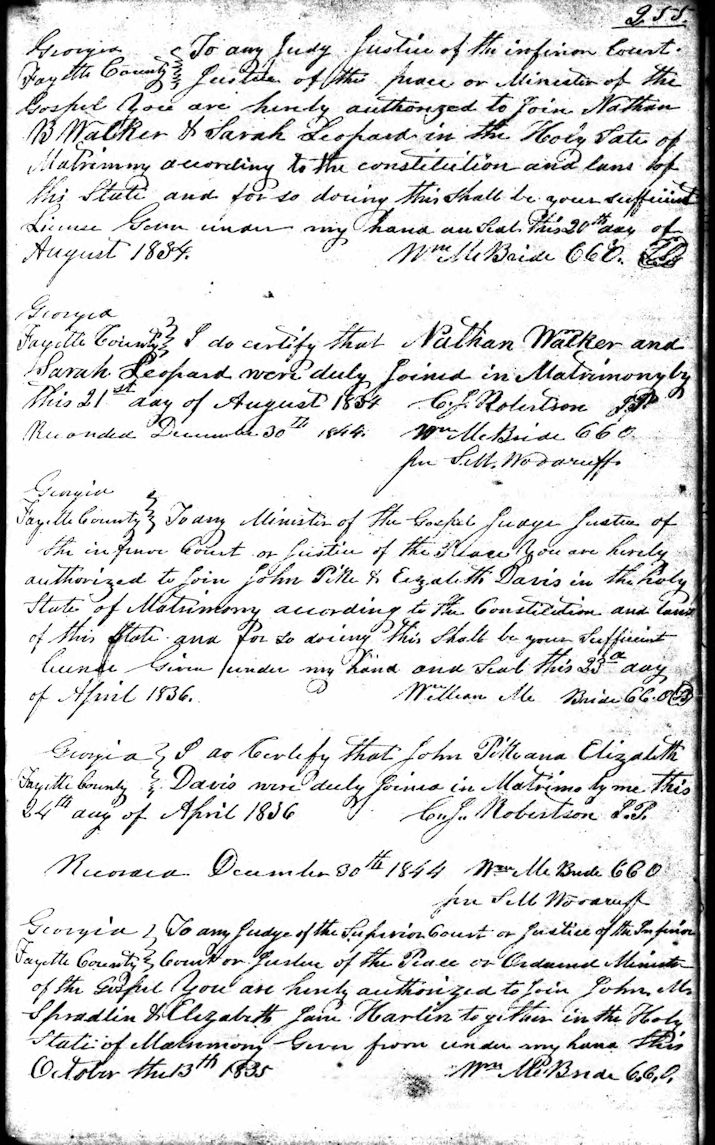 255.
Georgia } To any Judg Justice of the infirior Court.
Fayette County } Justice of the peace or Minister of the
Gospel You are herely authorized to Join Nathan
B Walker & Sarah Leopard in the Holy State of
Matrimny according to the constitution and laws of
this State and for so doeing this Shall be your sufficient
License Given under my hand an Seal this 20th day of
August 1834. Wm McBride CCO.
Georgia
Fayette County } I do certify that Nathan Walker and
Sarah Leopard were duly Joined in Matrimony by
this 21st day of August 1834 C J. Robertson J.P.
Recorded December 30th 1844. Wm McBride CCO
per S.M. Woodruff
Georgia
Fayette County } To any Minister of the Gospel Judge Justice of
the infirior Court or Justice of the Peace You are hereby
authorized to Join John Pike & Elizabeth Davis in the holy
State of Matrimony according to the Constitution and laws
of this State and for so doeing this Shall be your Sufficient
licence Given under my hand and Seal this 23d day
of April 1836. William Mc Bride CC.O
Georgia } I do Certify that John Pike and Elizabeth
Fayette County } Davis were duly Joined in Matrimo by me this
24th day of April 1836 C. J. Robertson J.P.
Recorded December 30th 1844 Wm McBride CCO
per S M Woodruff
Georgia } To any Judge of the Superior Court or Justice of the Inferior
Fayette County } Court or Justice of the Peace or Ordained Minister
of the Gospel You are hereby authorized to Join John M
Spradlin & Elizabeth Jane Harlin together in the Holy
State of Matrimony Given from under my hand this
October the 13th 1835 Wm McBride C.C.O.